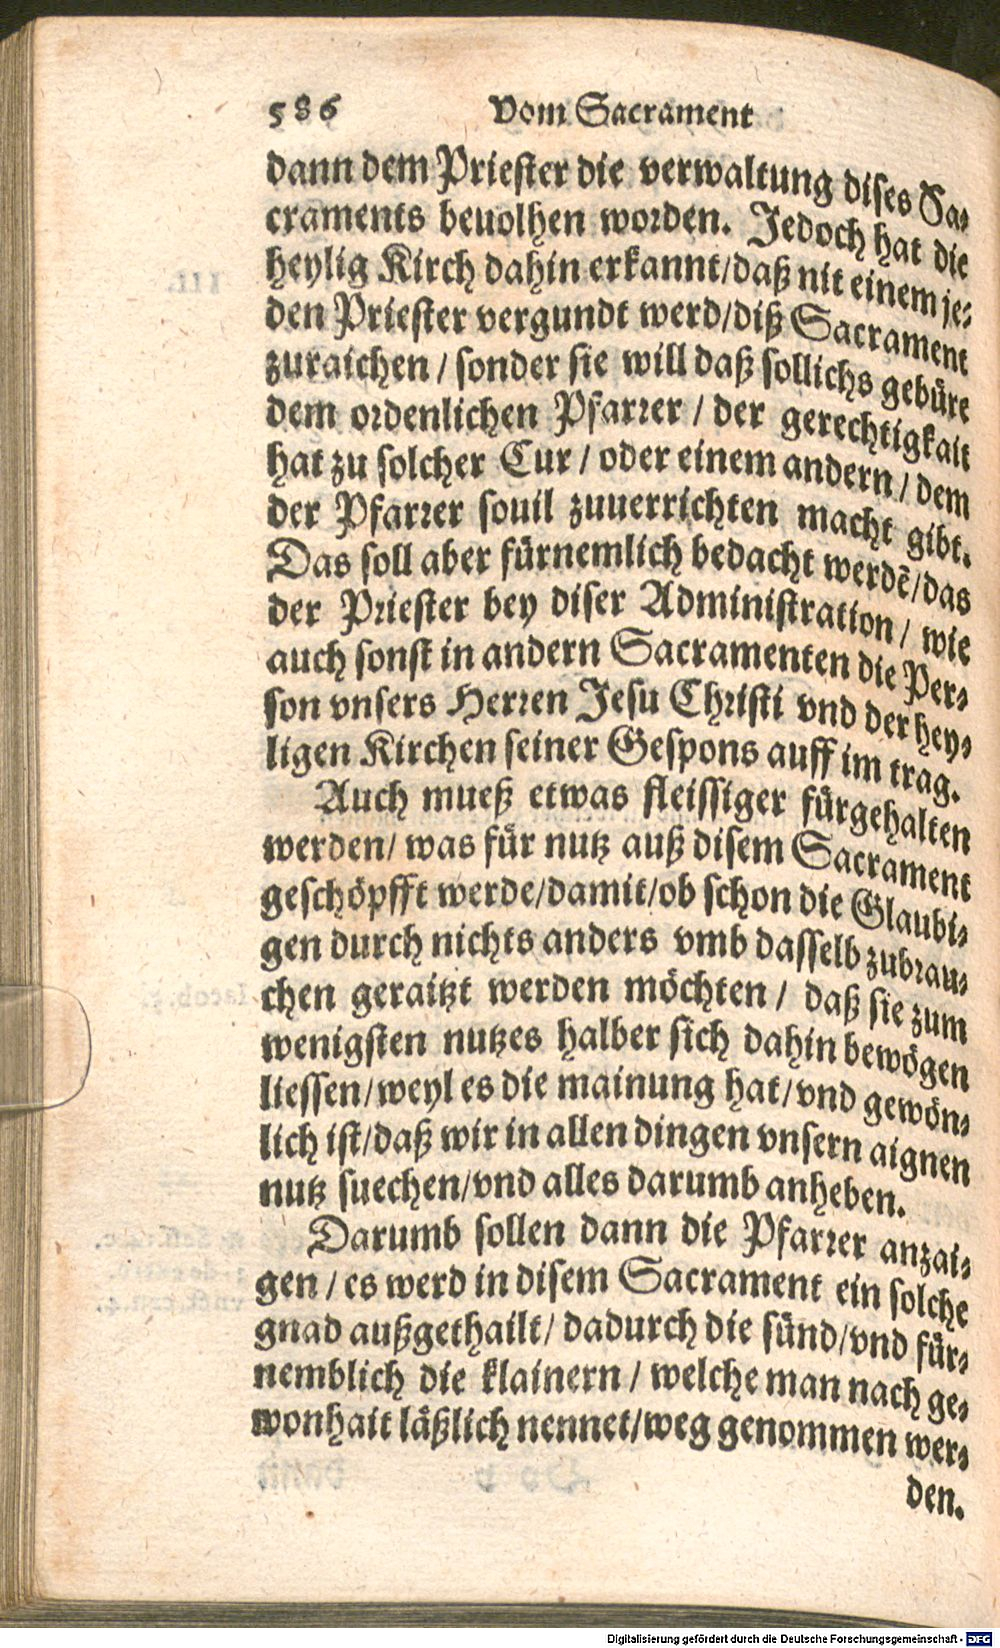 586 Vom Sacrament
dann dem Priester die verwaltung dises Sa⸗
craments beuolhen worden. Jedoch hat die
heylig Kirch dahin erkannt/daß nit einem je⸗
den Priester vergundt werd/diß Sacrament
zuraichen / sonder sie will daß sollichs gebüre
dem ordenlichen Pfarrer / der gerechtigkait
hat zu solcher Cur / oder einem andern / dem
der Pfarrer souil zuuerrichten macht gibt.
Das soll aber fürnemlich bedacht werdẽ/das
der Priester bey diser Administration / wie
auch sonst in andern Sacramenten die Per⸗
son vnsers Herren Jesu Christi vnd der hey⸗
ligen Kirchen seiner Gespons auff im trag.
Auch mueß etwas fleissiger fürgehalten
werden/ was für nutz auß disem Sacrament
geschöpfft werde/damit/ob schon die Glaubi⸗
gen durch nichts anders vmb dasselb zubrau⸗
chen geraitzt werden möchten / daß sie zum
wenigsten nutzes halber sich dahin bewögen
liessen/weyl es die mainung hat/vnd gewön⸗
lich ist/daß wir in allen dingen vnsern aignen
nutz suechen/vnd alles darumb anheben.
Darumb sollen dann die Pfarrer anzai⸗
gen / es werd in disem Sacrament ein solche
gnad außgethailt/ dadurch die sünd/vnd für⸗
nemblich die klainern / welche man nach ge⸗
wonhait läßlich nennet/weg genommen wer⸗
den.
Digitalisierung gefördert durch die Deutsche Forschungsgemeinschaft - DFG